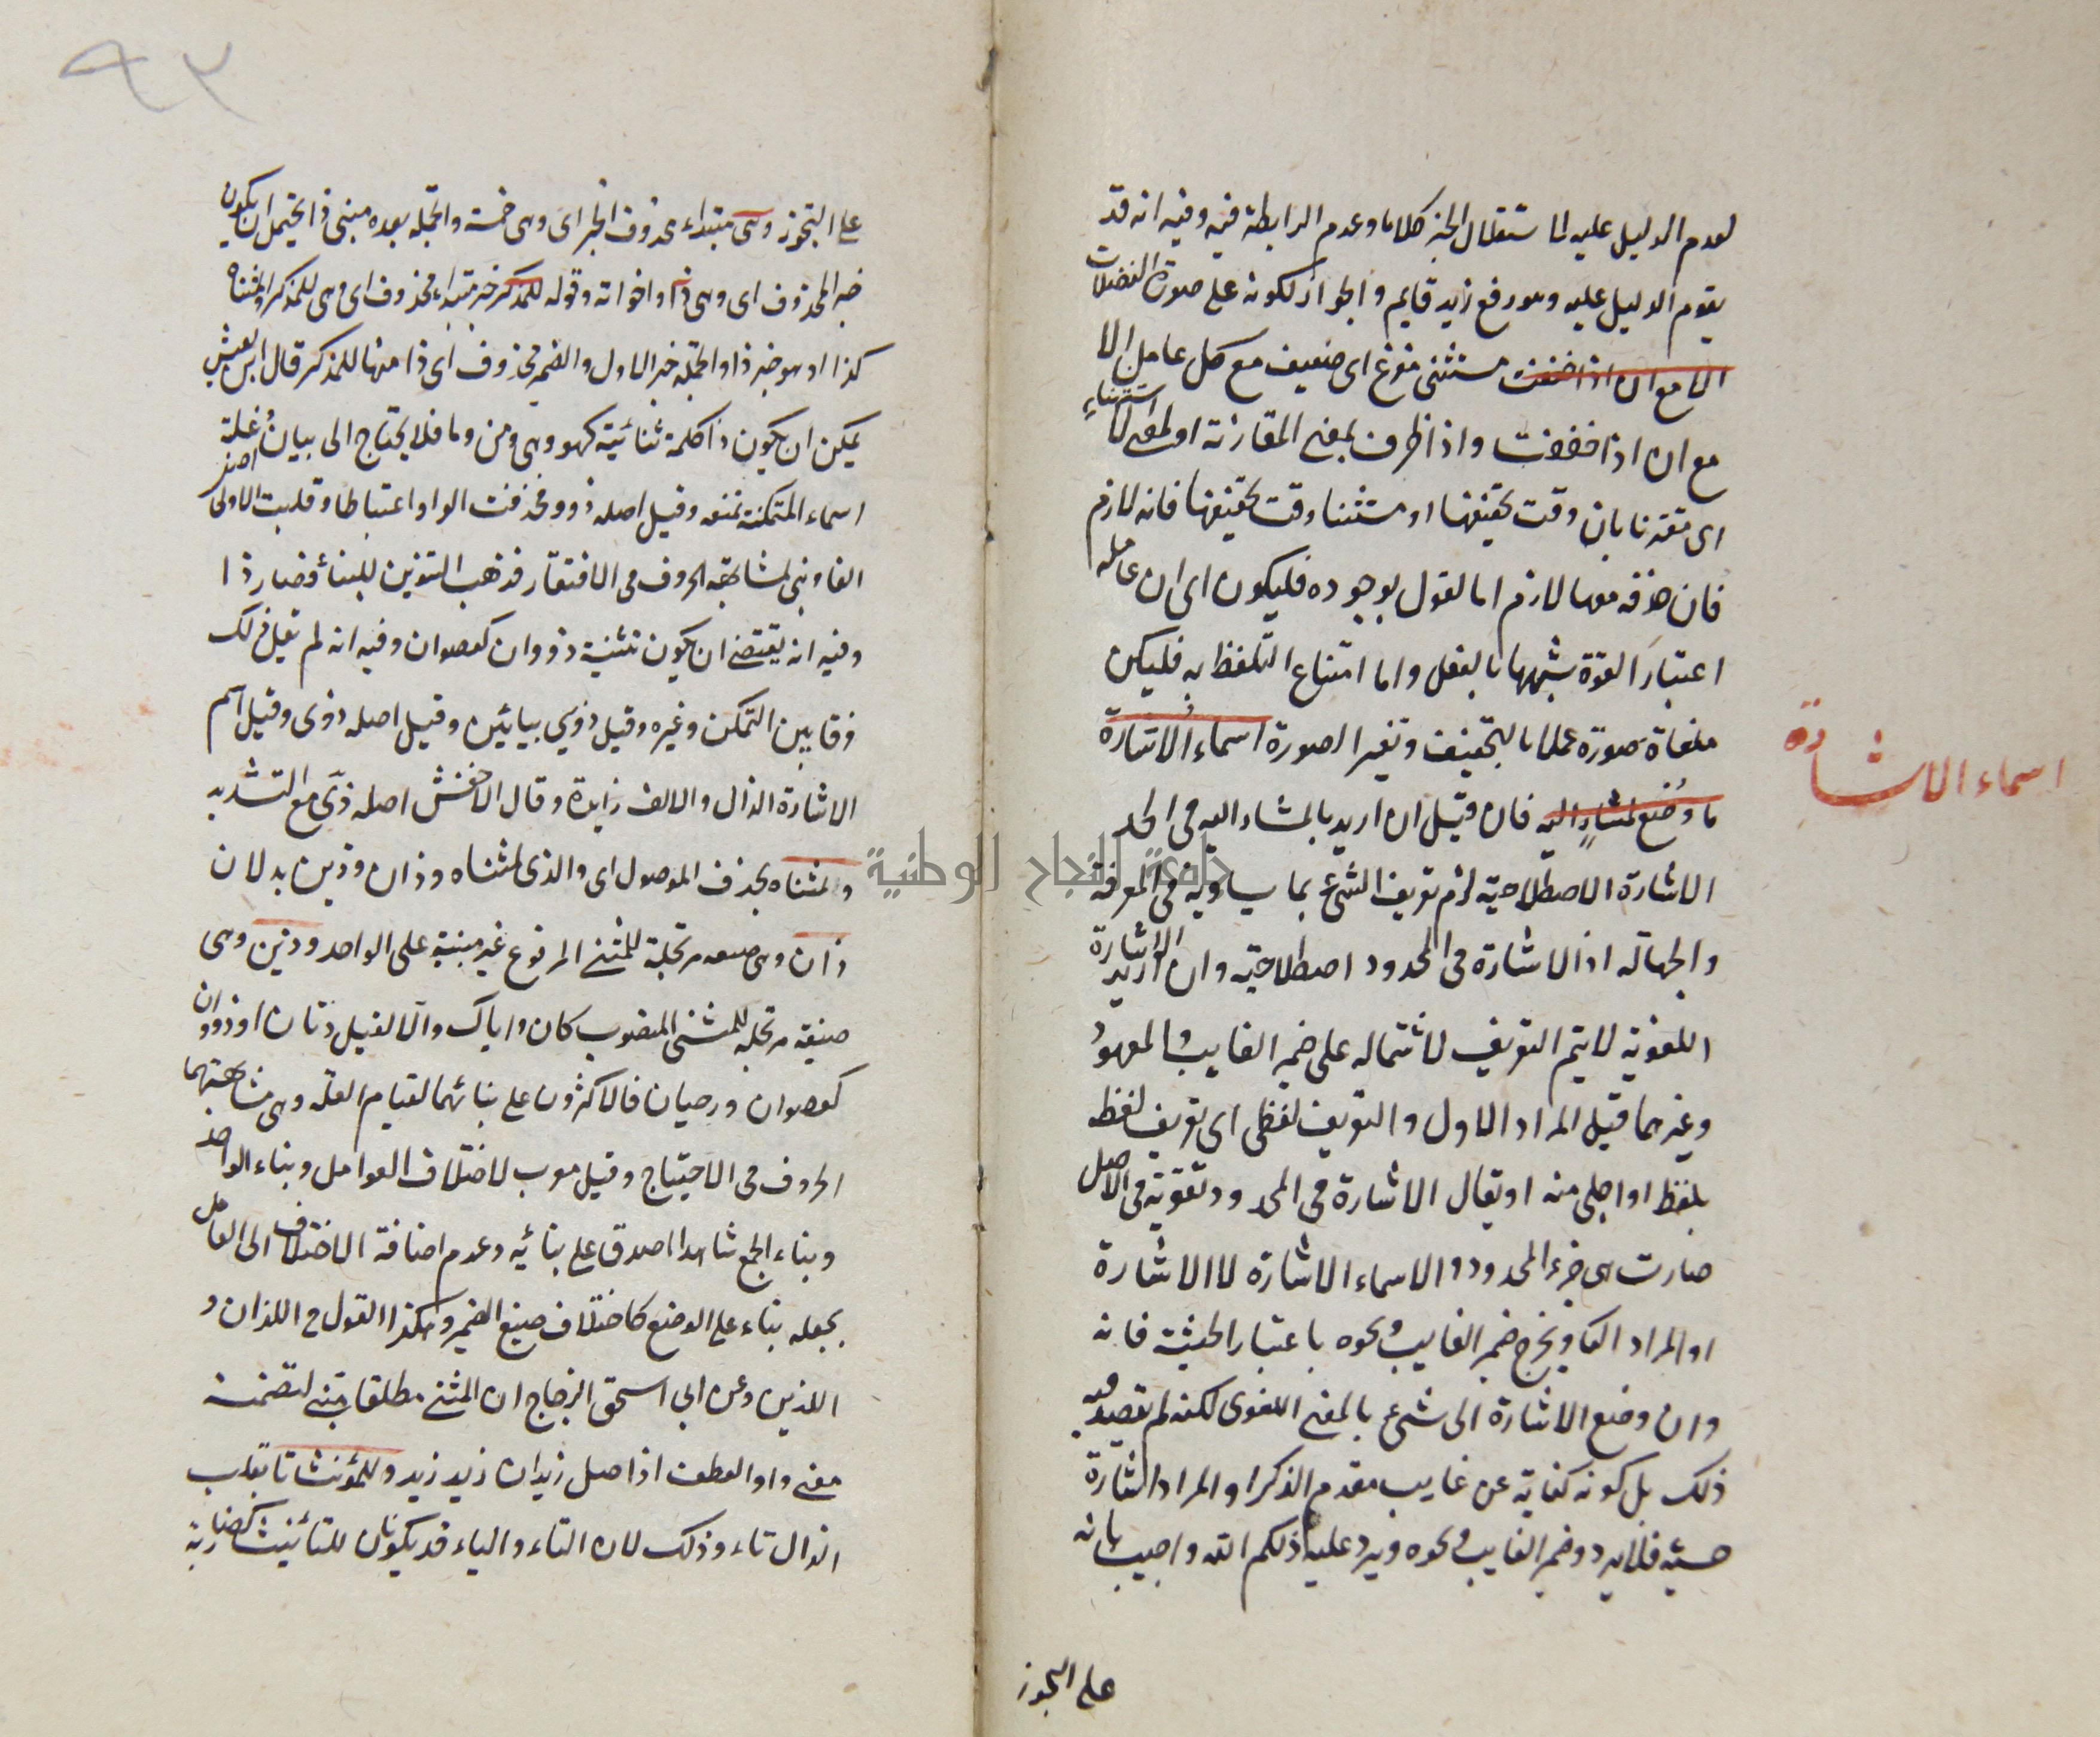 لعدم الدليل عليه لاستقلال الخبر كلاما وعدم الرابطة فيه وفيه انه قد
يقوم الدليل عليه وهو رفع زيد قايم والجواز لكونه على صورة الفضلات
الا مع ان اذا خففت مستثنى مفرغ اى ضعيف مع كل عامل الا
مع ان اذا خففت واذا ظرف بمعنى المقارنة او لمعنى الاستثناء
اى مقترنا بان وقت تخفيفها او مستثنا وقت تخفيفها فانه لازم
فان حذفه معها لازم اما القول بوجوده فليكون اى ان عامله
اعتبار القوة شبهها بالفعل واما امتناع التلفظ به فليكن
ملغاة صورة عملا بالتخفيف وتغيرا لصورة اسماء الاشارة
اسماء الاشارة
ما وضع لمشار اليه فان قيل ان اريد بالمشار اليه فى الحد
الاشارة الاصطلاحية لزم تعريف الشئ بما يساويه فى المعرفة
والجهالة اذ الاشارة فى المحدود اصطلاحية وان اريد الاشارة
اللغوية لا يتم التعريف لاشتماله على ضمير الغايب والمعهود
وغيرهما قيل المراد الاول والتعريف لفظى اى تعريف لفظ
بلفظ اواجلى منه او يقال الاشارة فى المحدود لغوية فى الاصل
صارت هى جزء المحدود والاسماء الاشارة لا الاشارة
او المراد الثانى ويخرج ضمير الغايب ونحوه باعتبار الحيثية فانه
وان وضع الاشارة الى شئ بالمعنى اللغوى لكنه لم يقصد فيه
ذلك بل كونه كناية عن غايب مقدم الذكر او المراد اشارة
حسية فلا يرد وضمير الغايب ونحوه ويرد عليه ذلكم الله واجيب بانه
على التجوز
٩٣
على التجوز وهى مبتداء محذوف الخبر اى وهى خمسة والجملة بعده مبنى ذا يحتمل ان يكون
خبر المحذوف اى وهى ذا واخواته وقوله للمذكر خبر مبتداء محذوف اى وهى للمذكر والمثناه
كذا او هو خبر ذا والجملة خبر الاول والضمير محذوف اى ذا منها للمذكر قال ابن يعيش
يمكن ان يكون ذا كلمة ثنائية كهو وهى ومن وما فلا يحتاج الى بيان علة
اسماء المتكنة تمنعه وقيل اصله ذوو فحذفت الواو اعتباطا وقلبت الاولى
الفا وبنى لمشابهة الحروف فى الافتقار فذهب التنوين للبناء فصار ذا
وفيه انه يقتضى ان يكون تثنية ذووان كعصوان وفيه انه لم يقل ذلك
فرقا بين التمكن وغيره وقيل ذوى بيائين وقيل اصله ذوى وقيل اسم
الاشارة الذال والالف زايدة وقال الاخفش اصله ذى مع التشديد
ولمثناه بحذف الموصول اى والذى لمثناه وذان وذين بدلان
ذان وهى صيغه مرتجلة للمثنى المرفوع غير مبنية على الواحد وذين وهى
صيغة مرتجله للمثنى المنصوب كان واياك والا لقيل ذيان او ذووان
كعصوان ورحيان فالاكثرون على بنائهما لقيام العلة وهى مشابهتهما
الحروف فى الاحتياج وقيل معرب لاختلاف العوامل وبناء الواحد
وبناء الجمع شاهدا صدق على بنائيه وعدم اضافة الاختلاف الى العامل
بجعله بناء على الوضع كاختلاف صيغ الضمير وهكذا القول فى اللذان و
اللذين وعن ابى اسحق الزجاج ان المثنى مطلقا مبنى لتضمنه
معنى واو العطف اذ اصل زيدان زيد زيد وللمؤنث تا بقلب
الذال تاء وذلك لان التاء والياء قد يكونان للتانيث كضاربة